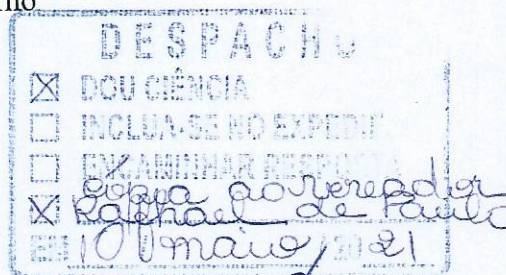 DESPACHO
DOU CIÊNCIA
INCLUA-SE NO EXPEDIE
ENCAMINHAR RESPOSTA
cópia ao vereador
Raphael de Paula
EM 10 / maio / 2021